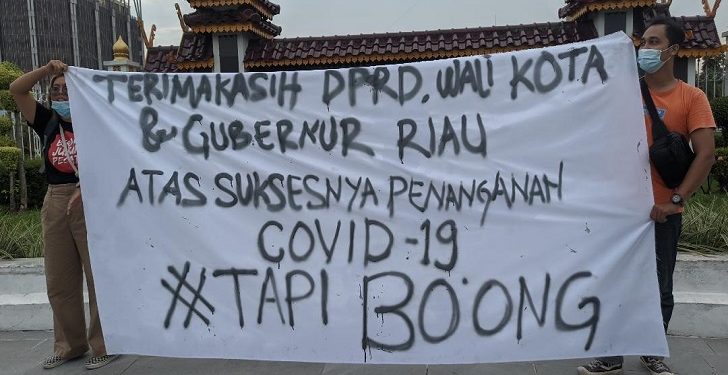 TERIMAKASIH DPRD. WALI KOTA
& GUBERNUR RIAU
ATAS SUKSESNYA PENANGANAN
COVID-19
#TAPI BO'ONG